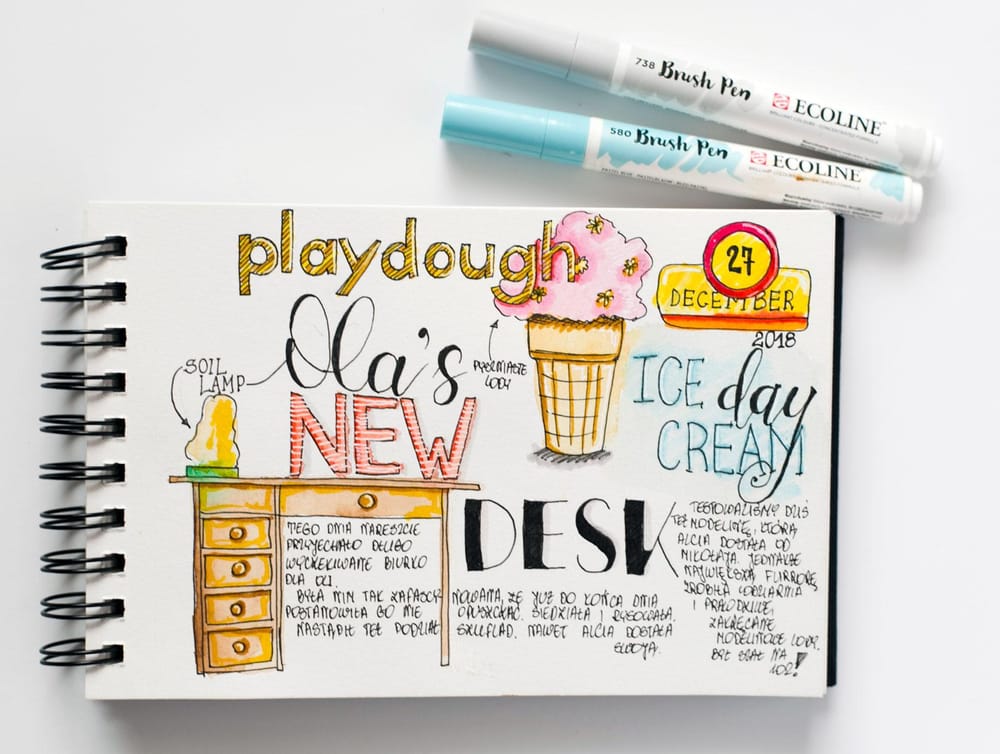 738 Brush Pen ECOLINE
580 Brush Pen ECOLINE
playdough
27
DECEMBER
2018
Ola's
SOIL
LAMP
LODY
ICE day
CREAM
NEW
DESK
TEGO DNIA NARESZCIE
PRZYJECHAŁO DŁUGO
WYCZEKIWANE BIURKO
DLA OLI.
BYŁA NIM TAK ZAFASCY
NOWANA, ŻE JUŻ DO KOŃCA DNIA
POSTANOWIŁA GO NIE
OPUSZCZAĆ. SIEDZIAŁA I RYSOWAŁA.
NASTĄPIŁ TEŻ PODZIAŁ
SZUFLAD. NAWET ALCIA DOSTAŁA
SWOJĄ.
TESTOWALIŚMY DZIŚ
TEŻ MODELINĘ, KTÓRĄ
ALCIA DOSTAŁA OD
MIKOŁAJA. JEDNAKŻE
NAJWIĘKSZĄ
ZROBIŁA LODZIARNIA
I PRAWDZIWE,
ZAKRĘCANE
LODY.
NA
102!